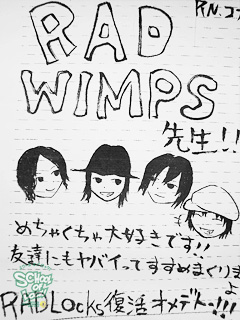 RN.コ
RAD
WIMPS
先生!!
めちゃくちゃ大好きです!!
友達にもヤバイってすすめまくりますよ
SCHOOL OF LOCK
RADLocks復活オメデトー!!!